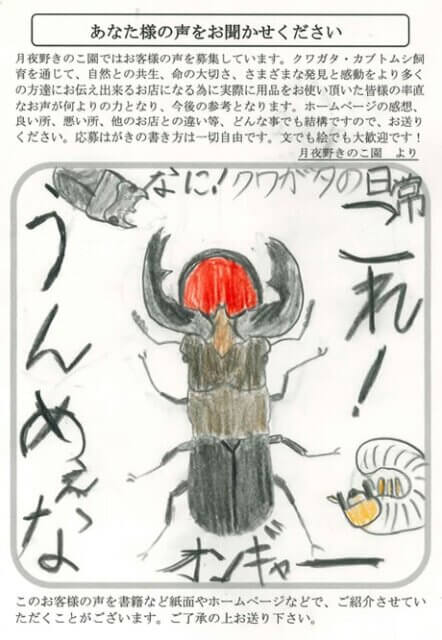 あなた様の声をお聞かせください
月夜野きのこ園ではお客様の声を募集しています。クワガタ・カブトムシ飼
育を通じて、自然との共生、命の大切さ、さまざまな発見と感動をより多く
の方達にお伝え出来るお店になる為に実際に用品をお使い頂いた皆様の率直
なお声が何よりの力となり、今後の参考となります。ホームページの感想、
良い所、悪い所、他のお店との違い等、どんな事でも結構ですので、お送り
ください。応募はがきの書き方は一切自由です。文でも絵でも大歓迎です！
月夜野きのこ園　より
なに！クワガタの日常
っこれ！
うんめぇな
オンギャー
このお客様の声を書籍など紙面やホームページなどで、ご紹介させてい
ただくことがございます。ご了承の上お送り下さい。